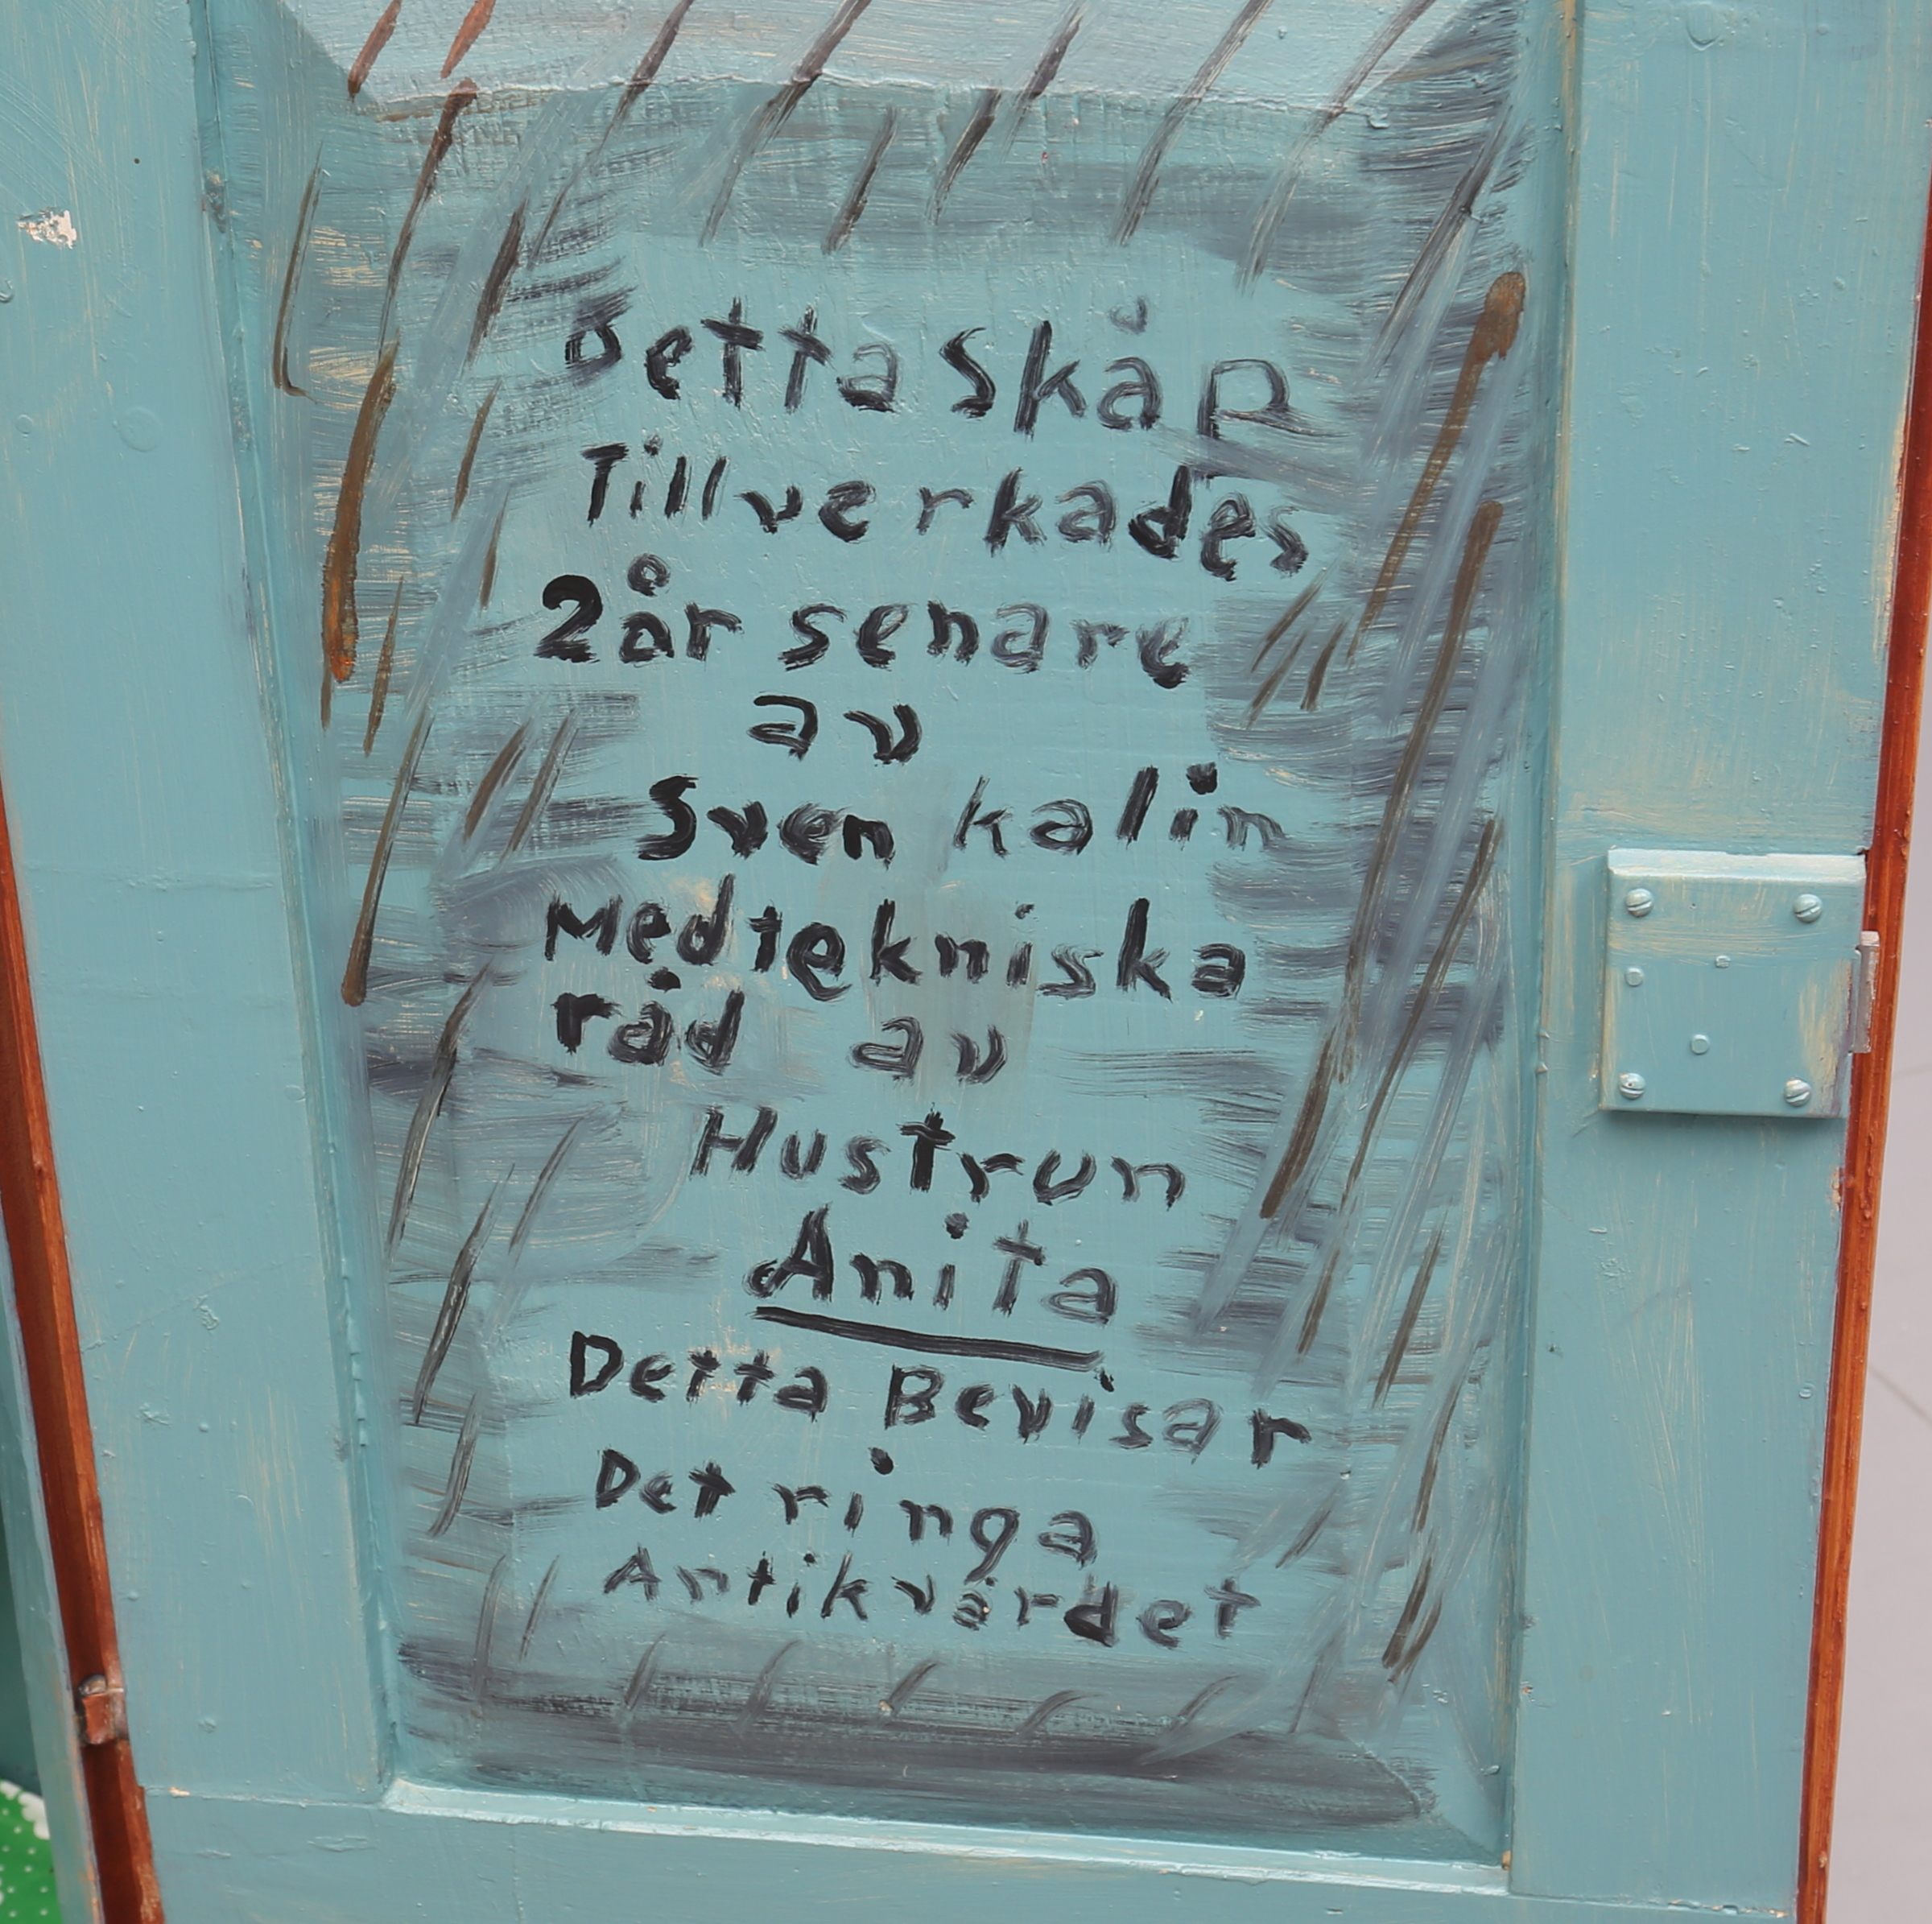 Detta Skåp
Tillverkades
2 år senare
av
Sven kalin
Med tekniska
råd av
Hustrun
Anita
Detta Bevisar
Det ringa
Antikvärdet